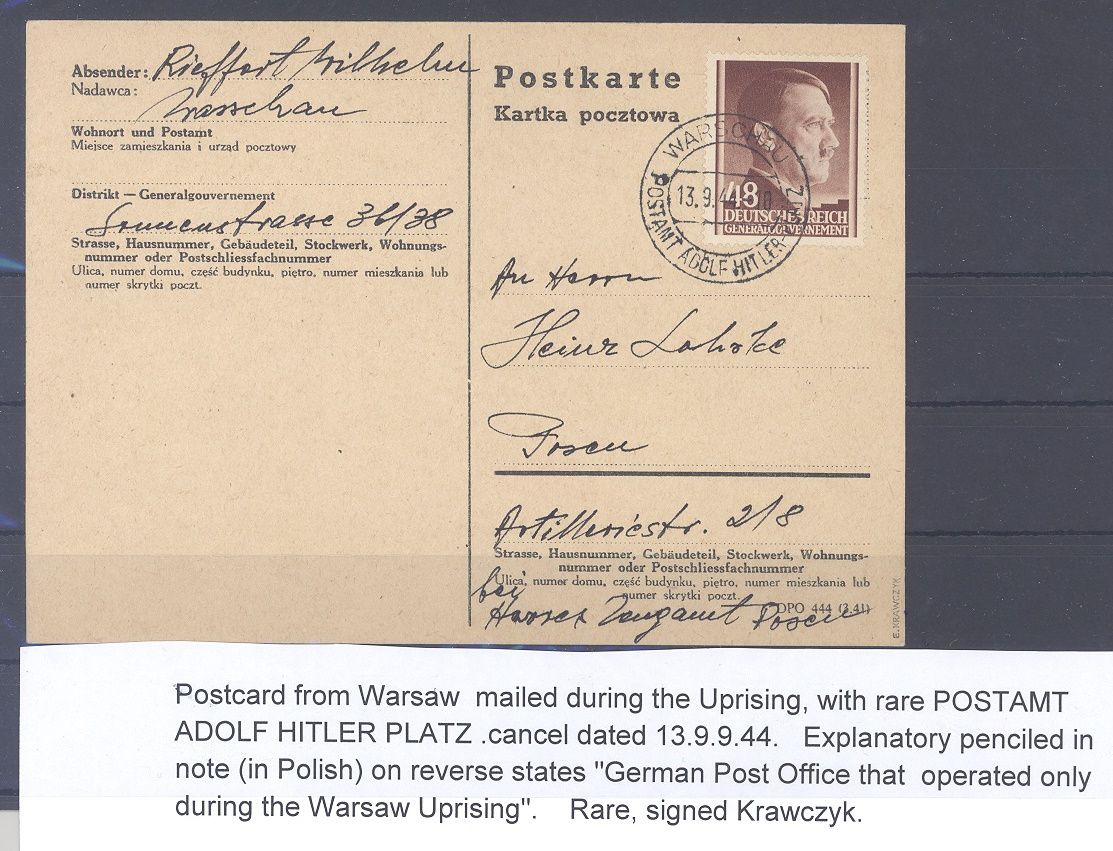 Absender: Rieffort Wilhelm
Nadawca:
Warschau
Wohnort und Postamt
Miejsce zamieszkania i urząd pocztowy
Distrikt — Generalgouvernement
Sonnenstrasse 36/38
Strasse, Hausnummer, Gebäudeteil, Stockwerk, Wohnungs-
nummer oder Postschliessfachnummer
Ulica, numer domu, część budynku, piętro, numer mieszkania lub
numer skrytki poczt.
Postkarte
Kartka pocztowa
WARSCHAU
13.9.44
POSTAMT ADOLF HITLER-PLATZ
48
DEUTSCHES REICH
GENERALGOUVERNEMENT
An Herrn
Heinz
Posen
Artilleriestr. 2/8
Strasse, Hausnummer, Gebäudeteil, Stockwerk, Wohnungs-
nummer oder Postschliessfachnummer
Ulica, numer domu, część budynku, piętro, numer mieszkania lub
numer skrytki poczt.
bei
Heeres Zeugamt Posen
DPO 444 (3.41)
E. KRAWCZYK
Postcard from Warsaw mailed during the Uprising, with rare POSTAMT
ADOLF HITLER PLATZ .cancel dated 13.9.9.44. Explanatory penciled in
note (in Polish) on reverse states "German Post Office that operated only
during the Warsaw Uprising". Rare, signed Krawczyk.